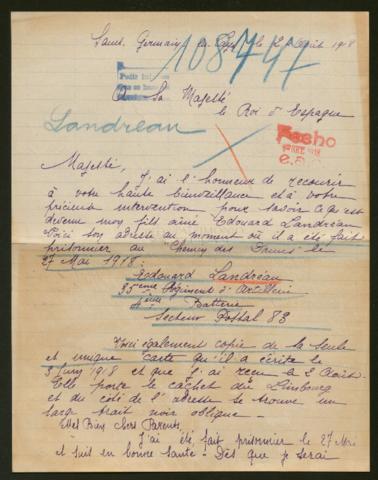 Saint Germain en le 2 Août 1918
108747
A Sa Majesté
le Roi d'Espagne
Landréau
Fecho
Majesté,
J'ai l'honneur de recourir
à votre haute bienveillance et à votre
précieuse intervention pour savoir ce qu'est
devenu mon fils aîné Edouard Landréau
Voici son adresse au moment où il a été fait
prisonnier au Chemin des Dames le
27 Mai 1918.
Edouard Landréau
35ème Régiment d'Artillerie
Batterie
Secteur Postal 83
Voici également copie de la seule
et unique carte qu'il a écrite le
3 Juin 1918 et que j'ai reçu le 2 Août.
Elle porte le cachet du Limbourg
et du côté de l'adresse se trouve un
large trait noir oblique.
Mes Bien chers Parents,
J'ai été fait prisonnier le 27 Mai
et suis en bonne santé - Dès que je serai